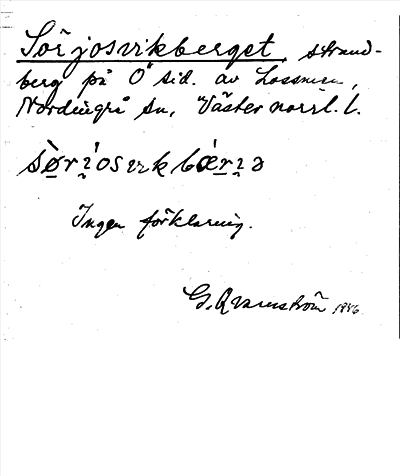 Sörjosvikberget, strand-
berg på Ö sid. av
Nordingrå sn, Västernorrl. l.
Ingen förklaring.
G. Qvarnström 1946